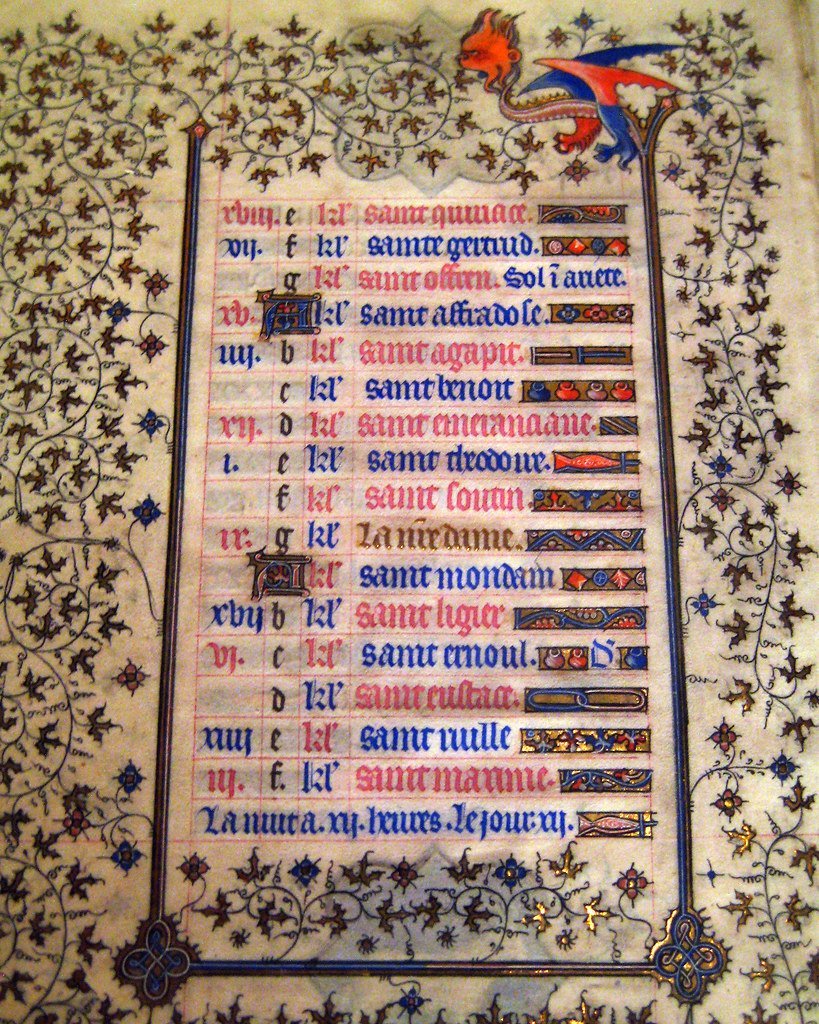 xviii. e kl' saint quiriace.
vii. f kl' sainte gertrud.
g kl' saint offren. Sol ī ariete.
xv. A kl' saint affradose.
iiii. b kl' saint agapit.
c kl' saint benoit
xii. d kl' saint emeranciane.
i. e kl' saint theodore.
f kl' saint soutin.
ix. g kl' La nr̄e dame.
A kl' saint mondain
xvii b kl' saint ligier
vi. c kl' saint ernoul. D
d kl' saint eustace.
xiiii e kl' saint rulle
iii. f. kl' saint maxime.
La nuit a. xii. heures. Le jour xii.